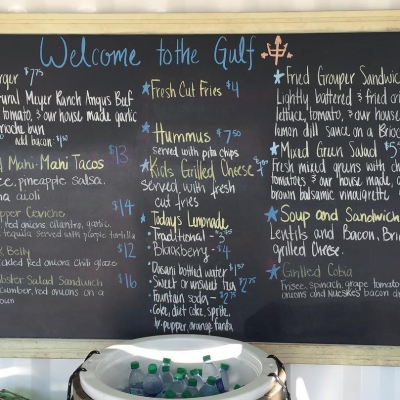 Welcome to the Gulf
rger $7.75
ural Meyer Ranch Angus Beef
tomato, & our house made garlic
rioche bun
add bacon
Mahi-Mahi Tacos $13
pineapple salsa,
aioli
pper Ceviche $14
red onions, cilantro, garlic,
tequila served with plantain tortilla
Belly $12
ickled Red onions Chili glaze
obster Salad Sandwich $16
cumber, red onions on a
oun
Fresh Cut Fries $4
Hummus $7.50
served with pita chips
Kids Grilled Cheese
served with fresh
cut fries
Todays Lemonade
- Traditional -
- Blackberry - $4
- Dasani bottled water
- Sweet or unsweet tea $2.75
- Fountain soda - $2.75
Coke, diet coke, sprite,
dr. pepper, orange fanta
Fried Grouper Sandwic
Lightly battered & fried
lettuce, tomato, & our house
lemon dill sauce on a Brioc
Mixed Green Salad $5
Fresh mixed greens with ch
tomatoes & our house made,
brown balsamic vinaigrette
Soup and Sandwich
Lentils and Bacon, Bri
grilled Cheese.
Grilled Cobia
Frisee, spinach, grape tomato
onions and Nueskes bacon